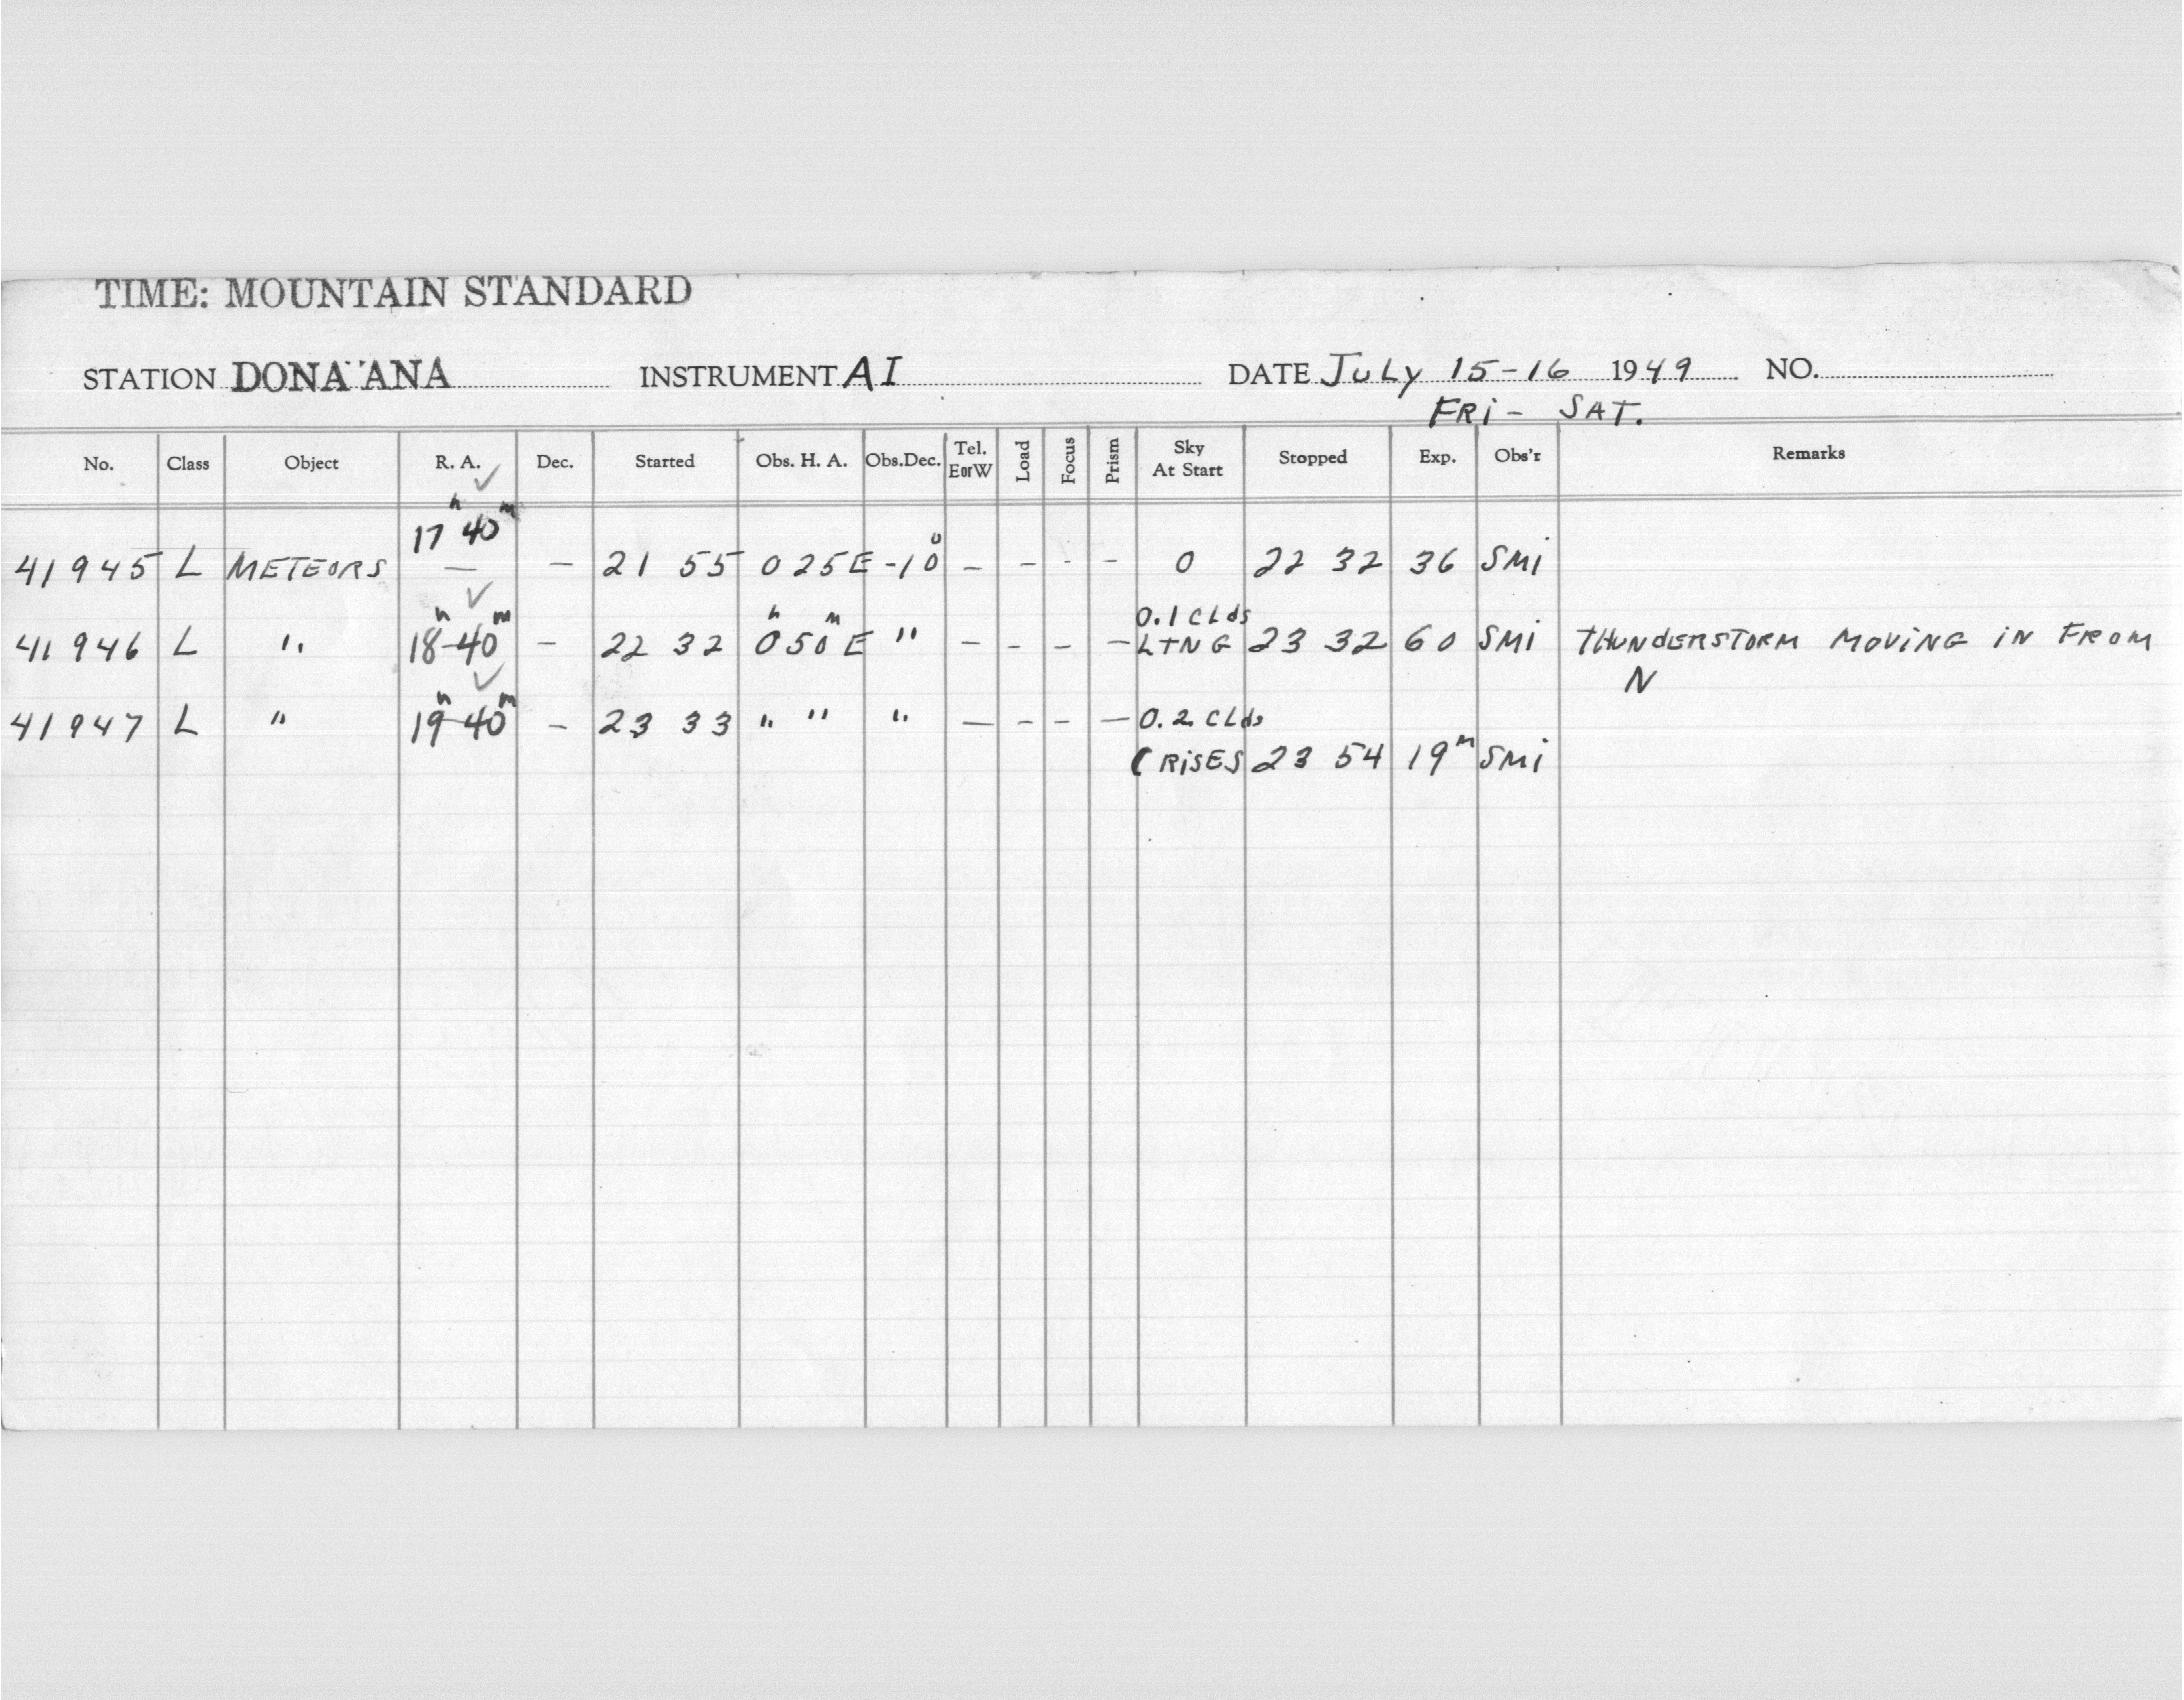 TIME: MOUNTAIN STANDARD
STATION DONA ANA INSTRUMENT AI DATE JULY 15-16 1949 NO.
FRI - SAT.
No. Class Object R. A. Dec. Started Obs. H. A. Obs.Dec. Tel. EorW Load Focus Prism Sky At Start Stopped Exp. Obs'r Remarks
✓
17h 40m
41945 L METEORS — — 21 55 0 25 E -10° — — - — 0 22 32 36 SMI
✓ 0.1 CLds
41946 L " 18h-40m — 22 32 0h 50m E " — - — — LTNG 23 32 60 SMI THUNDERSTORM MOVING IN FROM
✓ N
41947 L " 19h-40m — 23 33 " " " — - — — 0.2 CLds
( RISES 23 54 19m SMI